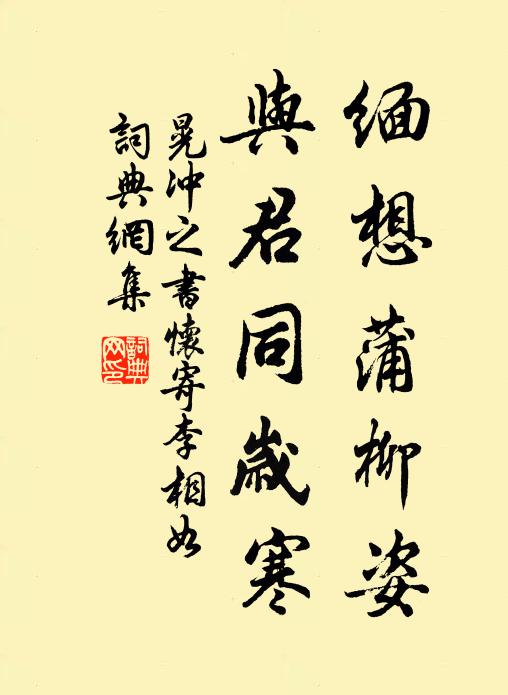 緬想蒲柳姿
與君同歲寒
晁冲之書懷寄李相如
詞典網集
詞典網印